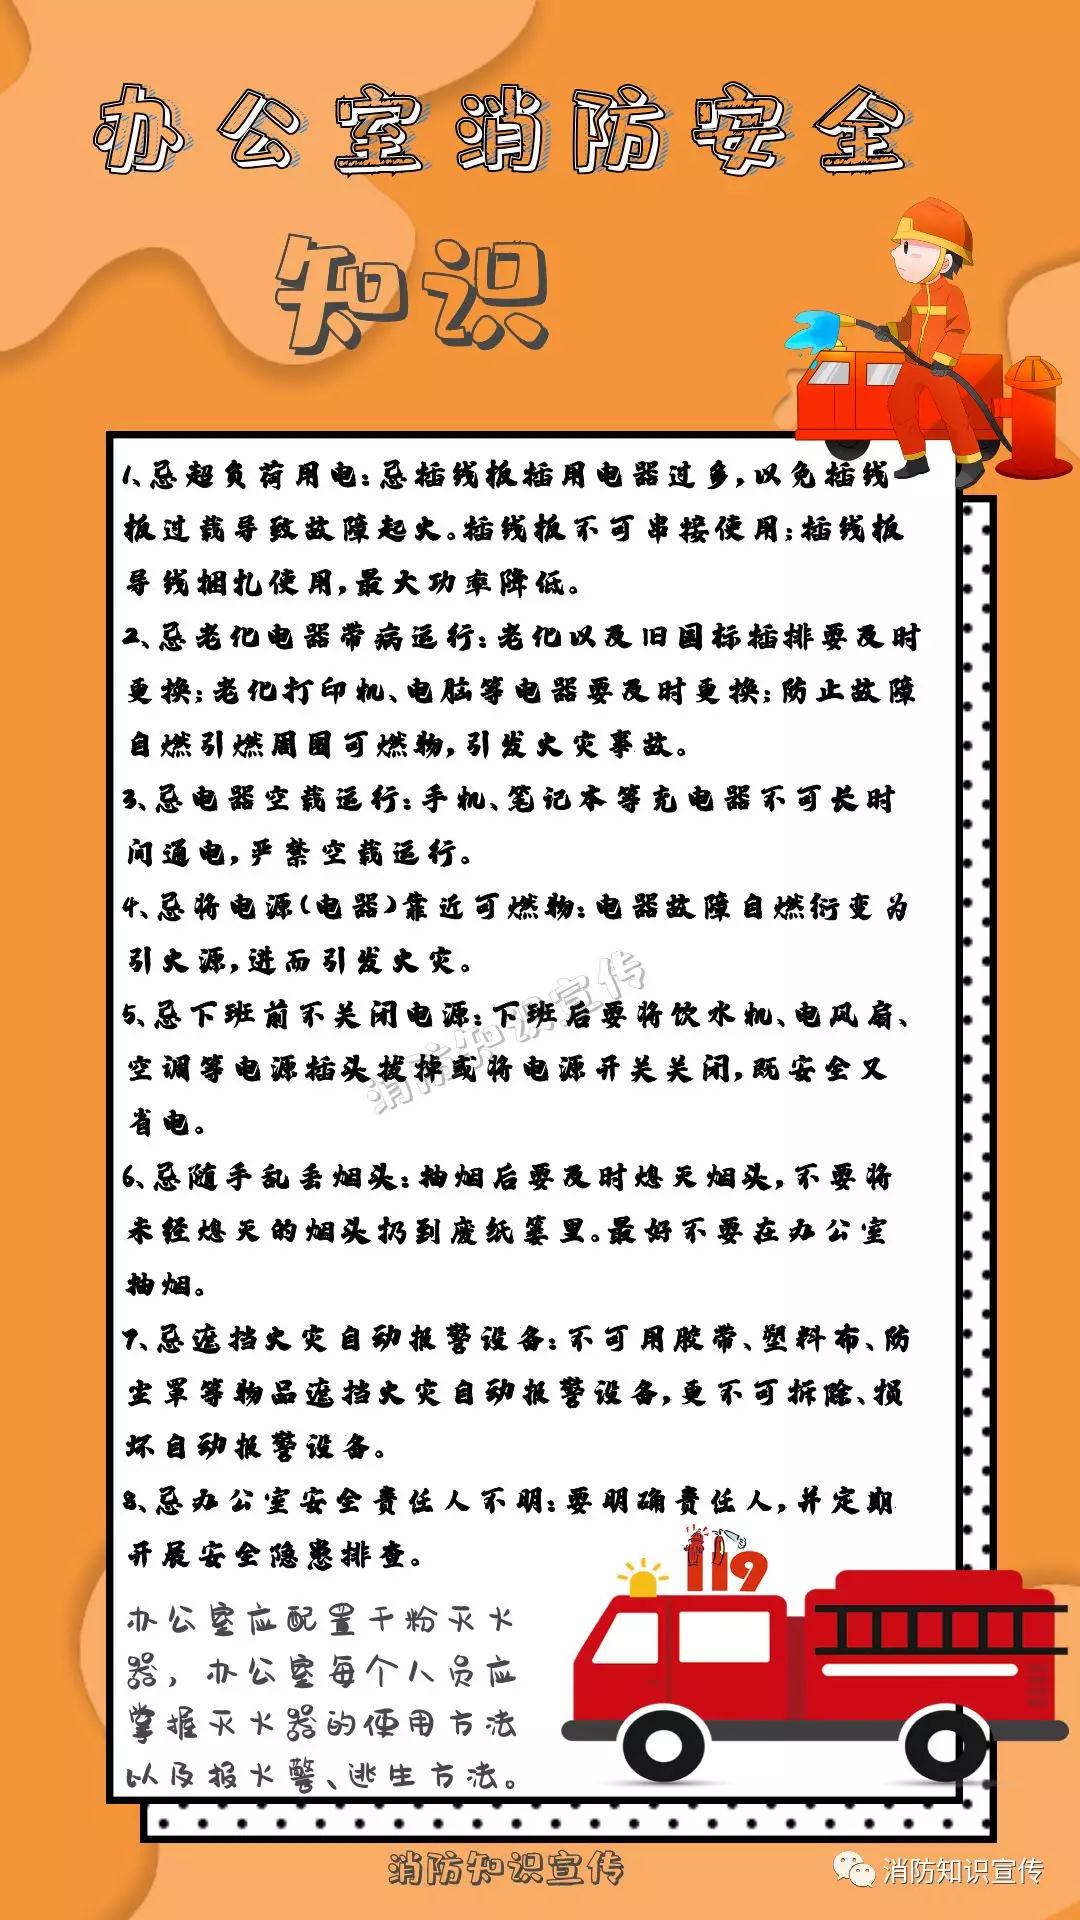 办公室消防安全
知识
1、忌超负荷用电:忌插线板插用电器过多,以免插线
板过载导致故障起火。插线板不可串接使用;插线板
导线捆扎使用,最大功率降低。
2、忌老化电器带病运行:老化以及旧国标插排要及时
更换;老化打印机、电脑等电器要及时更换;防止故障
自燃引燃周围可燃物,引发火灾事故。
3、忌电器空载运行:手机、笔记本等充电器不可长时
间通电,严禁空载运行。
4、忌将电源(电器)靠近可燃物:电器故障自燃衍变为
引火源,进而引发火灾。
5、忌下班前不关闭电源:下班后要将饮水机、电风扇、
空调等电源插头拔掉或将电源开关关闭,既安全又
省电。
6、忌随手乱丢烟头:抽烟后要及时熄灭烟头,不要将
未经熄灭的烟头扔到废纸篓里。最好不要在办公室
抽烟。
7、忌遮挡火灾自动报警设备:不可用胶带、塑料布、防
尘罩等物品遮挡火灾自动报警设备,更不可拆除、损
坏自动报警设备。
8、忌办公室安全责任人不明:要明确责任人,并定期
开展安全隐患排查。
119
办公室应配置干粉灭火
器,办公室每个人员应
掌握灭火器的使用方法
以及报火警、逃生方法。
消防知识宣传
消防知识宣传
消防知识宣传